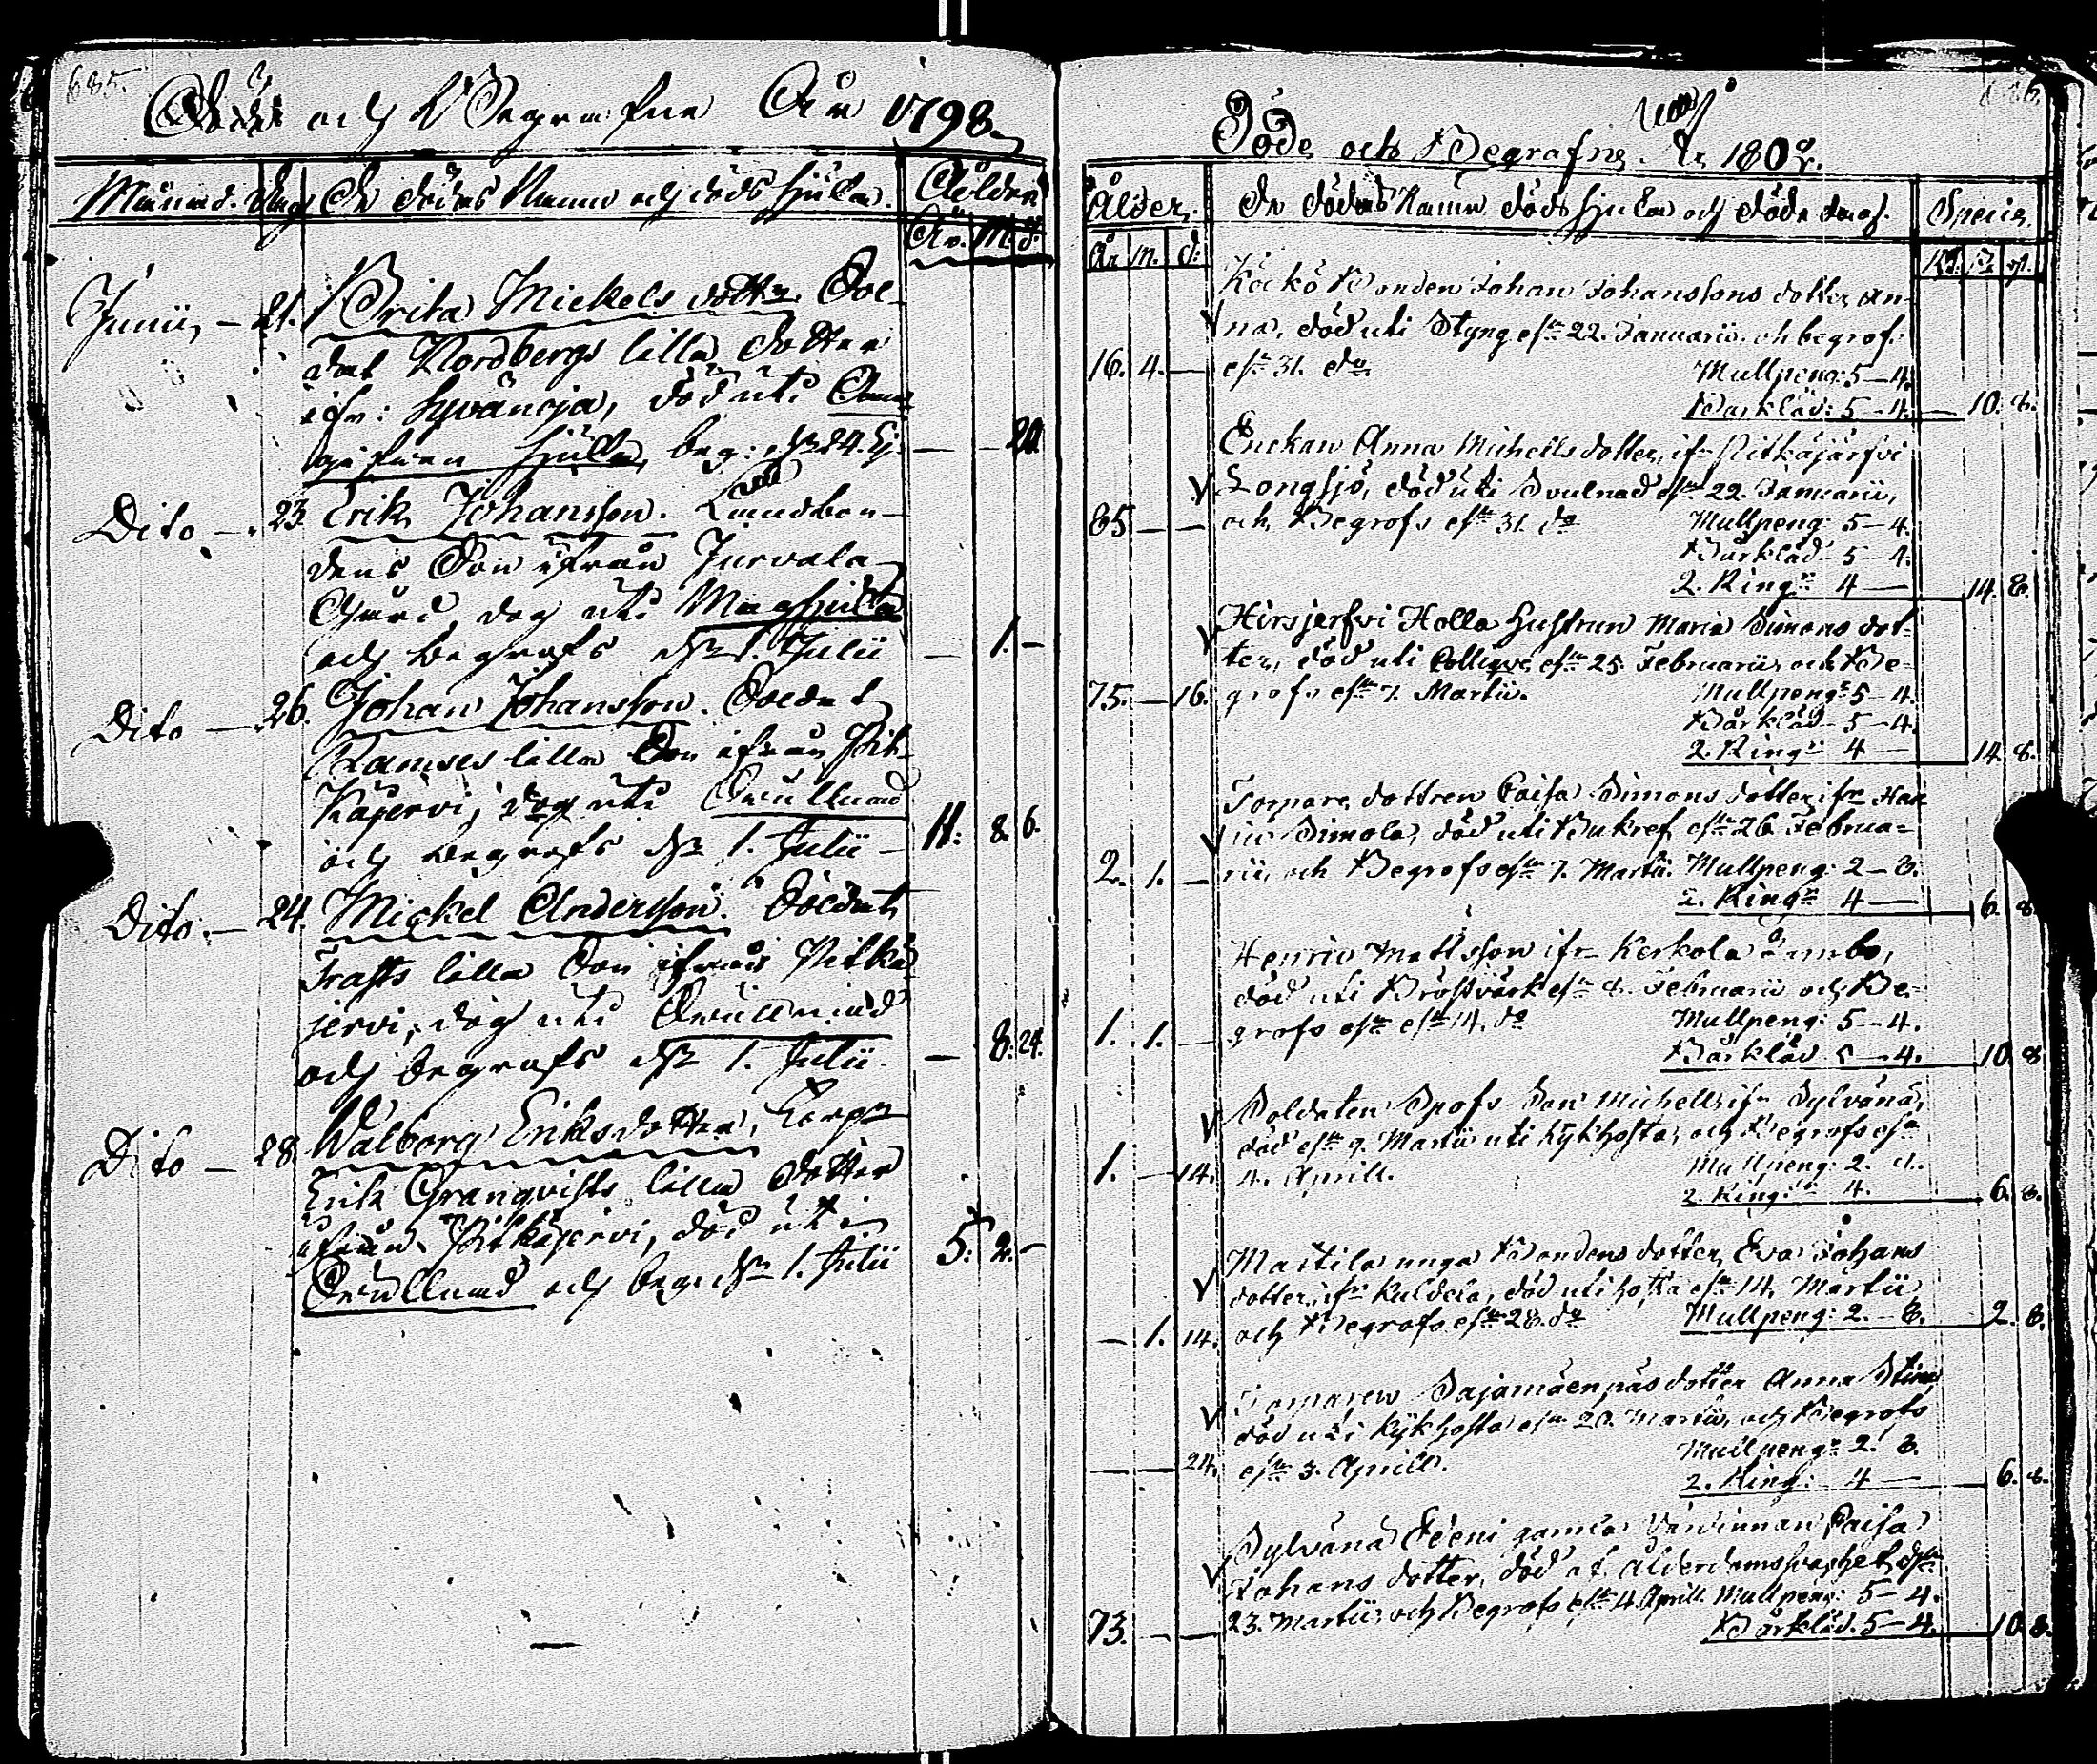 685.
Döde och Begrafne År 1798.
Månad. Dag De dödas Namn och döds sjuka. Ålder
År. M. d.
Junii, — 21. Brita Mickels dotter. Sol-
dat Nordbergs lilla dotter
ifr: Syvänoja, död uti Om-
gifven sjuka, beg: d: 24. — — 20.
Dito — 23. Erik Johansson. Landbon-
dens Son ifrån Jurvala
dog uti Magsjuka
och begrofs d: 1. Julii — 1. —
Dito — 26. Johan Johansson. Soldat
Ramses lilla Son ifrån Pit-
käjervi, dog uti
och begrofs d: 1. Julii — 11: 8. 6.
Dito. — 24. Mickel Andersson. Soldat
Trasts lilla Son ifrån Pitkä-
jervi, dog uti
och begrofs d: 1. Julii. — 8. 24.
Dito — 28 Walborg Eriksdotter, Corp:
Erik Granqvists lilla dotter
ifrån Pitkäjervi, död uti
och beg: d: 1. Julii 5: 2. —
Döde och Begrafne. År 1802.
Ålder. De dödas Namn döds sjuka och döde dag. Specie.
År m. d:
Köckö Bonden Johan Johanssons dotter An-
na, död uti Styng d: 22. Januarii. och begrof.
16. 4. — d: 31. do Mullpeng: 5 — 4.
Bårkläd: 5 — 4. — 10. 8.
Enckan Anna Michells dotter, ifr Pitkäjärfvi
Longsjö, död uti Svulnad d: 22. Januarii,
85 — — och Begrofs d: 31. do Mullpeng: 5 — 4.
Bårkläd 5 — 4.
2. Ring: 4 — 14. 8.
Hirsjerfvi Holla hustrun Maria Simons dot-
ter, död uti d: 25. Februarii, och Be-
75. — 16. grofs d: 7. Martii. Mullpeng: 5 — 4.
Bårkläd 5 — 4.
2. Ring: 4 — 14. 8.
Torpare dottren Caisa Simons dotter, ifr
Simola, död uti Bukref d: 26. Februa-
2. 1. — rii, och Begrofs d: 7. Martii. Mullpeng: 2 — 8.
2. Ring: 4 — 6. 8.
Henric Mattsson ifr Kerkola
död uti Bröstvärk d: Februarii och Be-
1. 1. — grofs d: 14. do Mullpeng: 5 — 4.
Bårkläd 5 — 4. 10. 8
Soldaten Spofs Son Michell, ifr Sylvänä,
död d: 9. Martii uti Kykhosta, och Begrofs d:
1. — 14. 4. Aprill. Mullpeng: 2.
2. Ring: 4. 6. 8.
Martila unga Bondens dotter, Eva Johans
dotter, ifr död uti hosta d: 14. Martii,
— 1. 14. och Begrofs d: 28. do Mullpeng: 2. — 8. 2. 8.
Torparen Sajamäenpäs dotter Anna Stina
död uti Kykhosta d: 20. Martii, och Begrofs
— — 24. d: 3. Aprill. Mullpeng: 2. 8.
2. Ring: 4 — 6. 8.
Sylvänä Eeeni gamla Värdinnan Caisa
Johans dotter, död af ålderdomsvaghet d:
73. — — 23. Martii, och Begrofs d: 4. Aprill. Mullpeng: 5 — 4.
Bårkläd. 5 — 4. 10. 8.